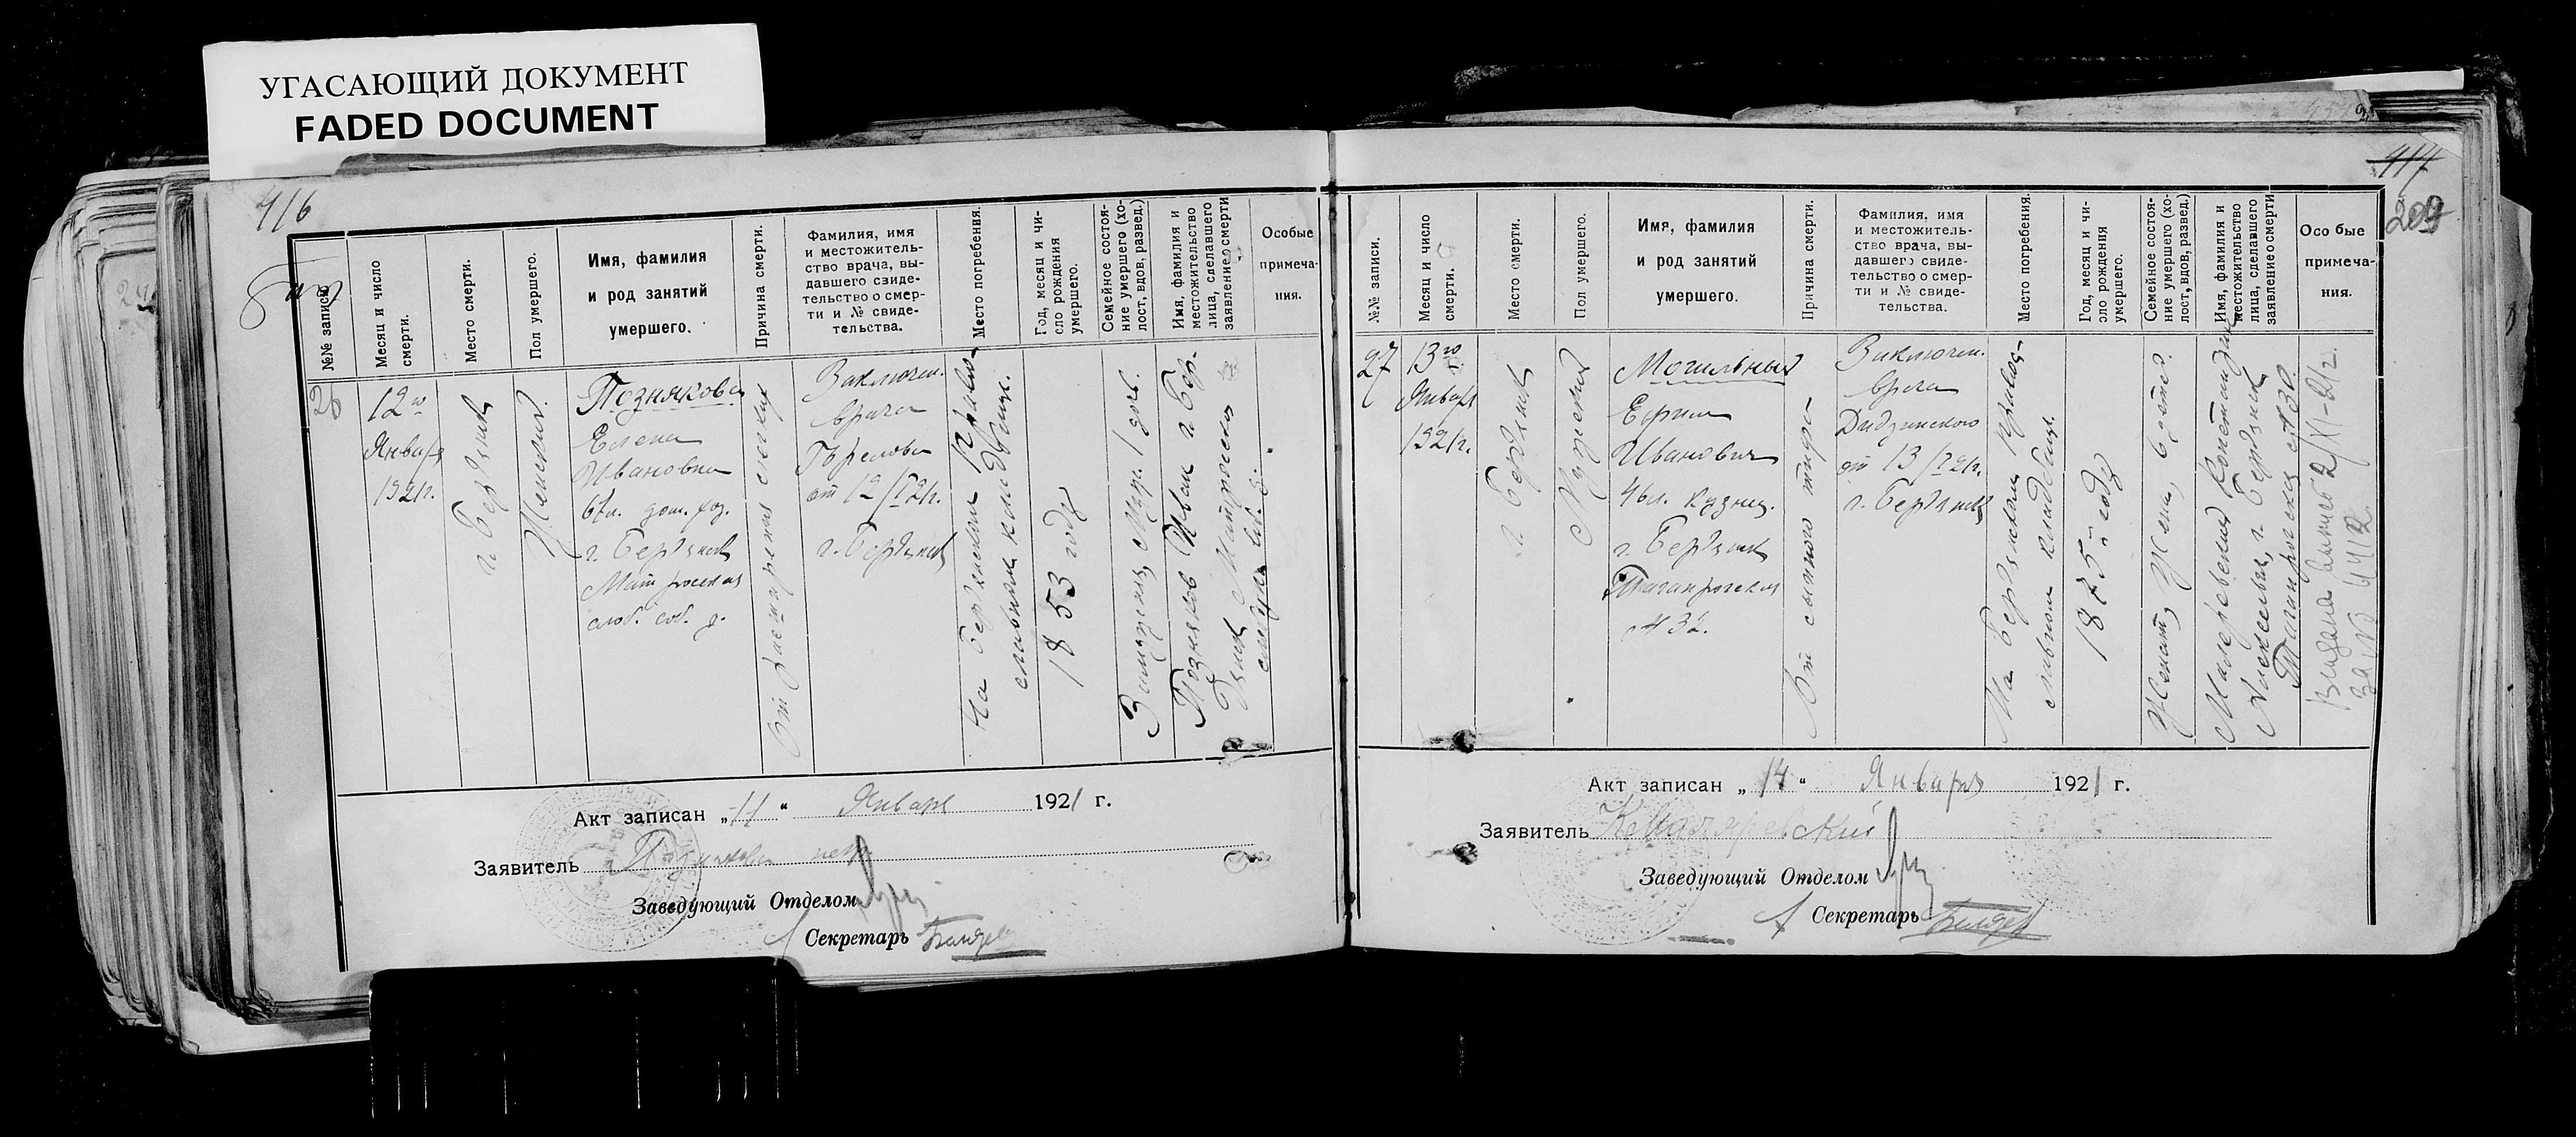 УГАСАЮЩИЙ ДОКУМЕНТ
FADED DOCUMENT
416
№№ записи.
Месяц и число
смерти.
Место смерти.
Пол умершего.
Имя, фамилия
и род занятий
умершего.
Причина смерти.
Фамилия, имя
и местожитель-
ство врача, вы-
давшего свиде-
тельство о смер-
ти и № свиде-
тельства.
Место погребения.
Год, месяц и чи-
сло рождения
умершего.
Семейное состоя-
ние умершего (хо-
лост, вдов, развед.)
Имя, фамилия и
местожительство
лица, сделавшего
заявление о смерти
Особые
примеча-
ния.
12го
Января
1921г.
г. Бердянск
Женский.
Познякова
Елена
Ивановна
67л. дом. хоз.
г. Бердянск
Матросская
слоб. соб. д.
От расширения легких
Заключен.
врача
Горелова
от 12/I 21г.
г. Бердянск
На Бердянском Правос-
лавном кладбище.
1853 года
Замужняя, муж. 1 дочь.
Позняков Иван г. Бер-
дянск Матросская
слобода с. д.
Акт записан „11“ Января 1921 г.
Заявитель
Заведующий Отделом
Секретарь
417
209
№№ записи.
Месяц и число
смерти.
Место смерти.
Пол умершего.
Имя, фамилия
и род занятий
умершего.
Причина смерти.
Фамилия, имя
и местожитель-
ство врача, вы-
давшего свиде-
тельство о смер-
ти и № свиде-
тельства.
Место погребения.
Год, месяц и чи-
сло рождения
умершего.
Семейное состоя-
ние умершего (хо-
лост, вдов, развед.)
Имя, фамилия и
местожительство
лица, сделавшего
заявление о смерти
Осо бые
примеча-
ния.
27
13го
Января
1921г.
г. Бердянск
Мужской
Могильный
Ефим
Иванович
46л. кузнец.
г. Бердянск
Таганрогская
№ 32.
От сыпного тифа
Заключен.
врача
Дидзинского
от 13/I 21г.
г. Бердянск
На Бердянском Правос-
лавном кладбище.
1875 года
Женат, жена, 6 детей.
Маляревский Константин
Алексеевич, г. Бердянск
Таганрогская № 30.
Выдана выпись 2/XI-21г.
за № 4412
Акт записан „14“ Января 1921 г.
Заявитель К Маляревский
Заведующий Отделом
Секретарь